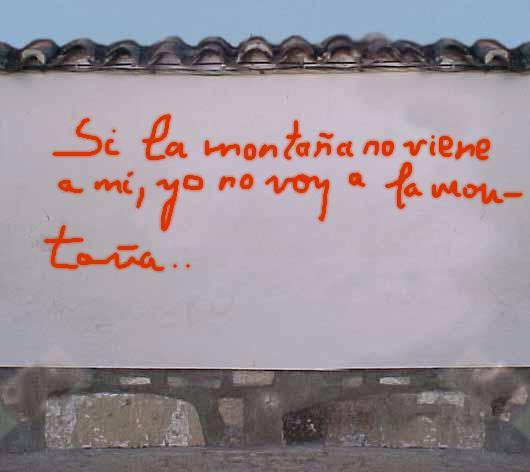 Si la montaña no viene
a mí, yo no voy a la mon-
taña..